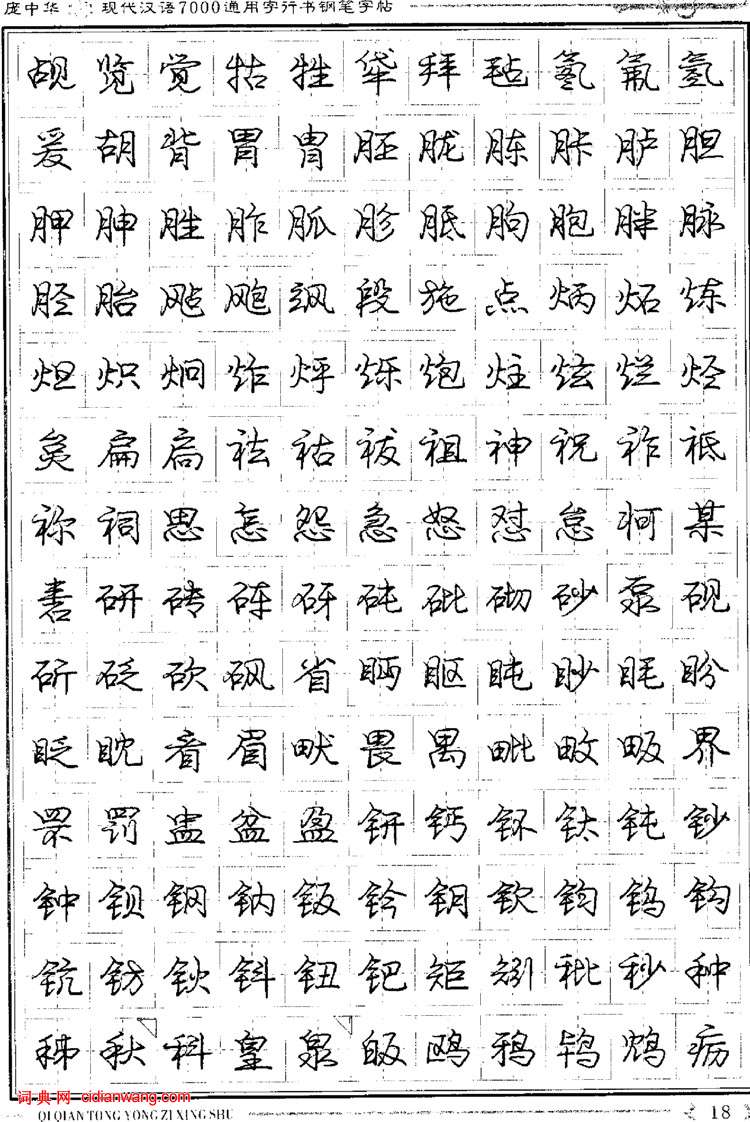 庞中华:现代汉语7000通用字行书钢笔字帖
觇览觉牯牲牮拜毡氡氟氢
爰胡背胃胄胚胧胨胩胪胆
胛胂胜胙胍胗胝朐胞胖脉
胫胎飐飑飒段施点炳炻炼
炟炽炯炸烀烁炮炷炫烂烃
炱扁扃祛祜祓祖神祝祚祗
祢祠思怎怨急怒怼怠牁某
砉研砖砗砑砘砒砌砂泵砚
斫砭砍砜省眄眍盹眇眊盼
眨眈看眉畎畏禺毗畋畈界
罘罚盅盆盈钘钙钚钛钝钞
钟钡钢钠钣钤钥钦钧钨钩
钪钫钬钭钮钯矩矧秕秒种
秭秋科皇泉皈鸥鸦鸨鸩疠
词典网 cidianwang.com
QI QIAN TONG YONG ZI XING SHU
18